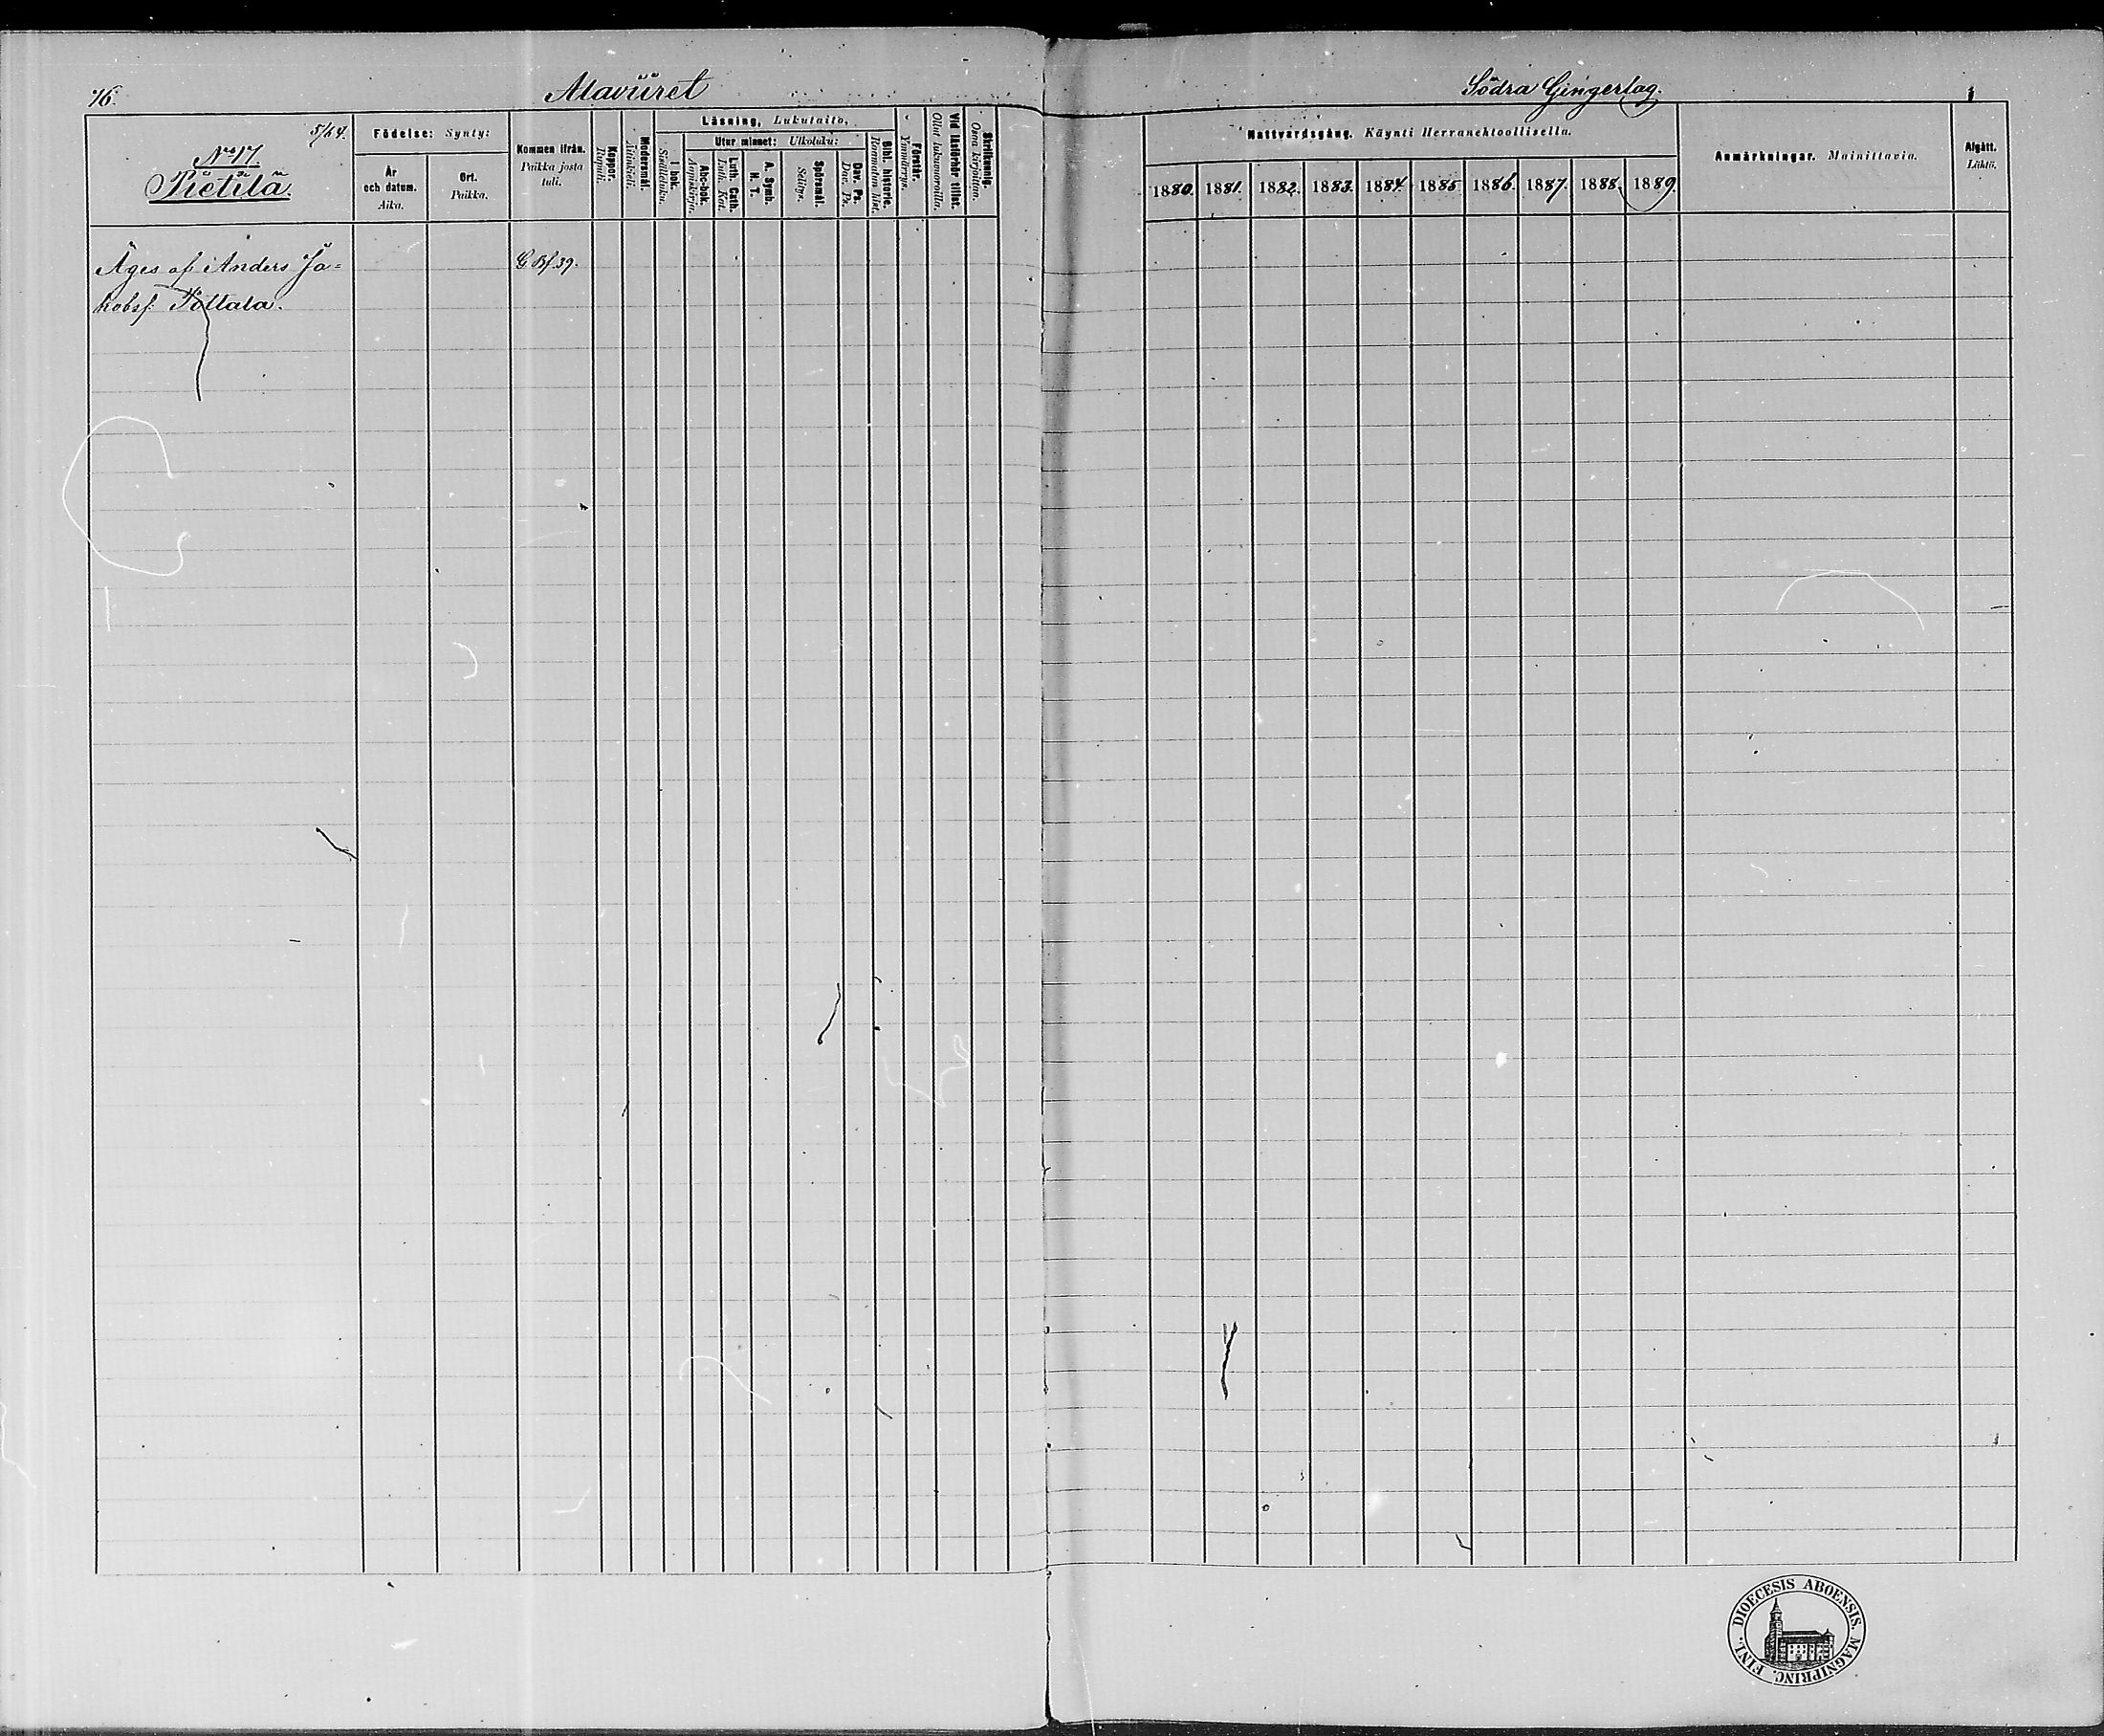 76.
Alaviiret
Södra Gingerlag.
5/64.
No 17.
Pietilä.
Födelse: Synty:
År och datum. Aika.
Ort. Paikka.
Kommen ifrån. Paikka josta tuli.
Koppor. Rupuli.
Modersmål. Äitinkieli.
Läsning, Lukutaito.
I bok. Sisältäluku.
Utur minnet: Ulkoluku:
Abc-bok. Aapiskirja.
Luth. Cath. Luth. Kat.
A. Symb. H. T.
Spörsmål. Selitys.
Dav. Ps. Dav. Ps.
Bibl. historie. Raamatun Hist.
Förstår. Ymmärrys.
Vid läsförhör tillst. Ollut lukuvuorolla.
Skrifkunnig. Osaa kirjoittaa.
Nattvardsgång. Käynti Herranehtoollisella.
1880. 1881. 1882. 1883. 1884. 1885 1886. 1887. 1888. 1889.
Anmärkningar. Mainittavia.
Afgått. Lähtö.
Äges af Anders Ja=
G Bf. 39.
kobsf. Pottala.
FINL. DIOECESIS ABOENSIS. MAGNIPRINC.